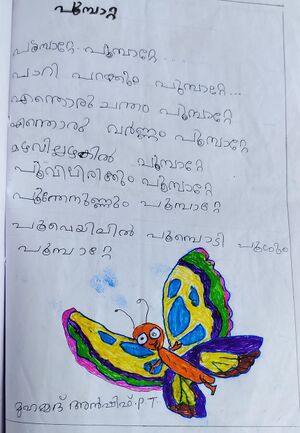 പൂമ്പാറ്റ
പൂമ്പാറ്റേ പൂമ്പാറ്റേ ...
പാറി പറക്കും പൂമ്പാറ്റേ ...
എന്തൊരു ചന്തം പൂമ്പാറ്റേ
എന്തൊരു വർണ്ണം പൂമ്പാറ്റേ
മഴവില്ലഴകിൽ പൂമ്പാറ്റേ
പൂവിലിരിക്കും പൂമ്പാറ്റേ
പൂന്തേനുണ്ണും പൂമ്പാറ്റേ
പൂവെയിലിൽ പൂമ്പൊടി പൂശും
പൂമ്പാറ്റേ
മുഹമ്മദ് അൻഷിഫ്.P.T.